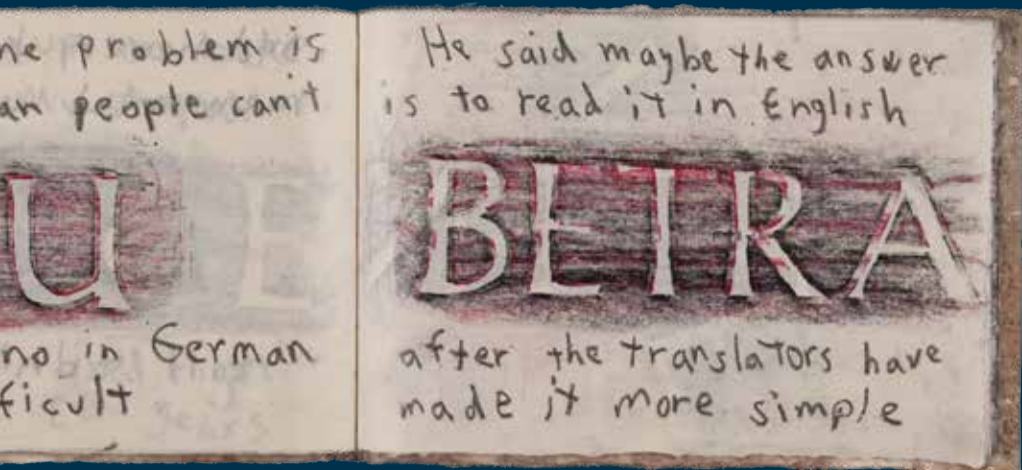 ne problem is
an people can't
U E
no in German
ficult
He said maybe the answer
is to read it in English
BETRA
after the translators have
made it more simple